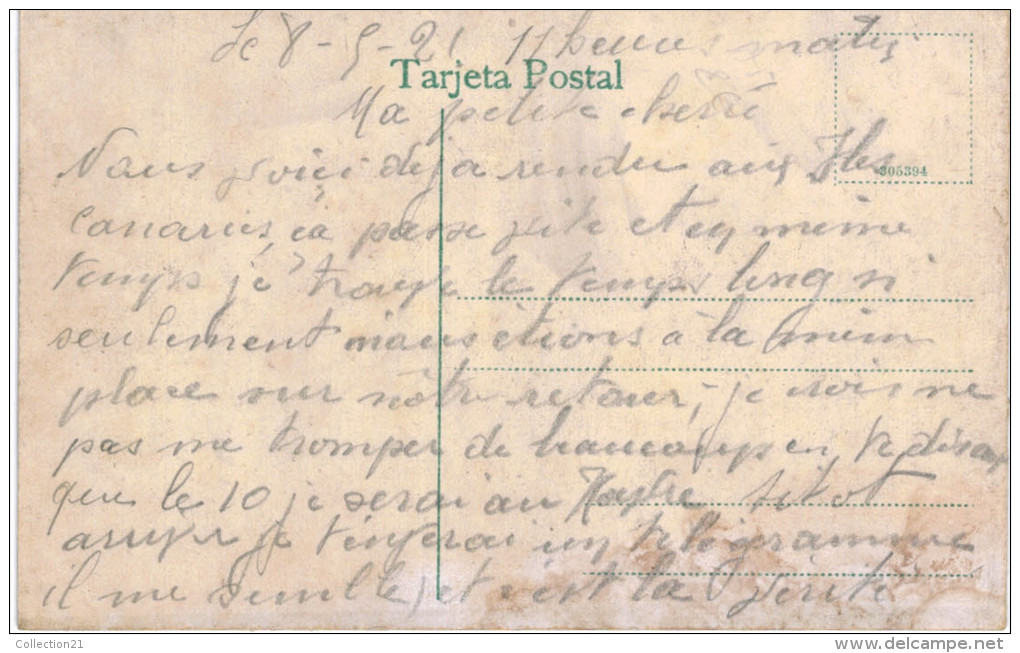 Le 8-5-21 11 heures matin
Tarjeta Postal
Ma petite cherie
Nous voici deja rendu aux Iles
305394
Canaries, ça passe vite et en meme
temps je trouve le temps long si
seulement nous étions à la meme
place sur nôtre retour, je crois ne
pas me tromper de beaucoup en te disant
que le 10 je serai au Havre sitot
arriver je t'enverai un telegramme
il me semble, et c'est la verité
Collection21
www.delcampe.net